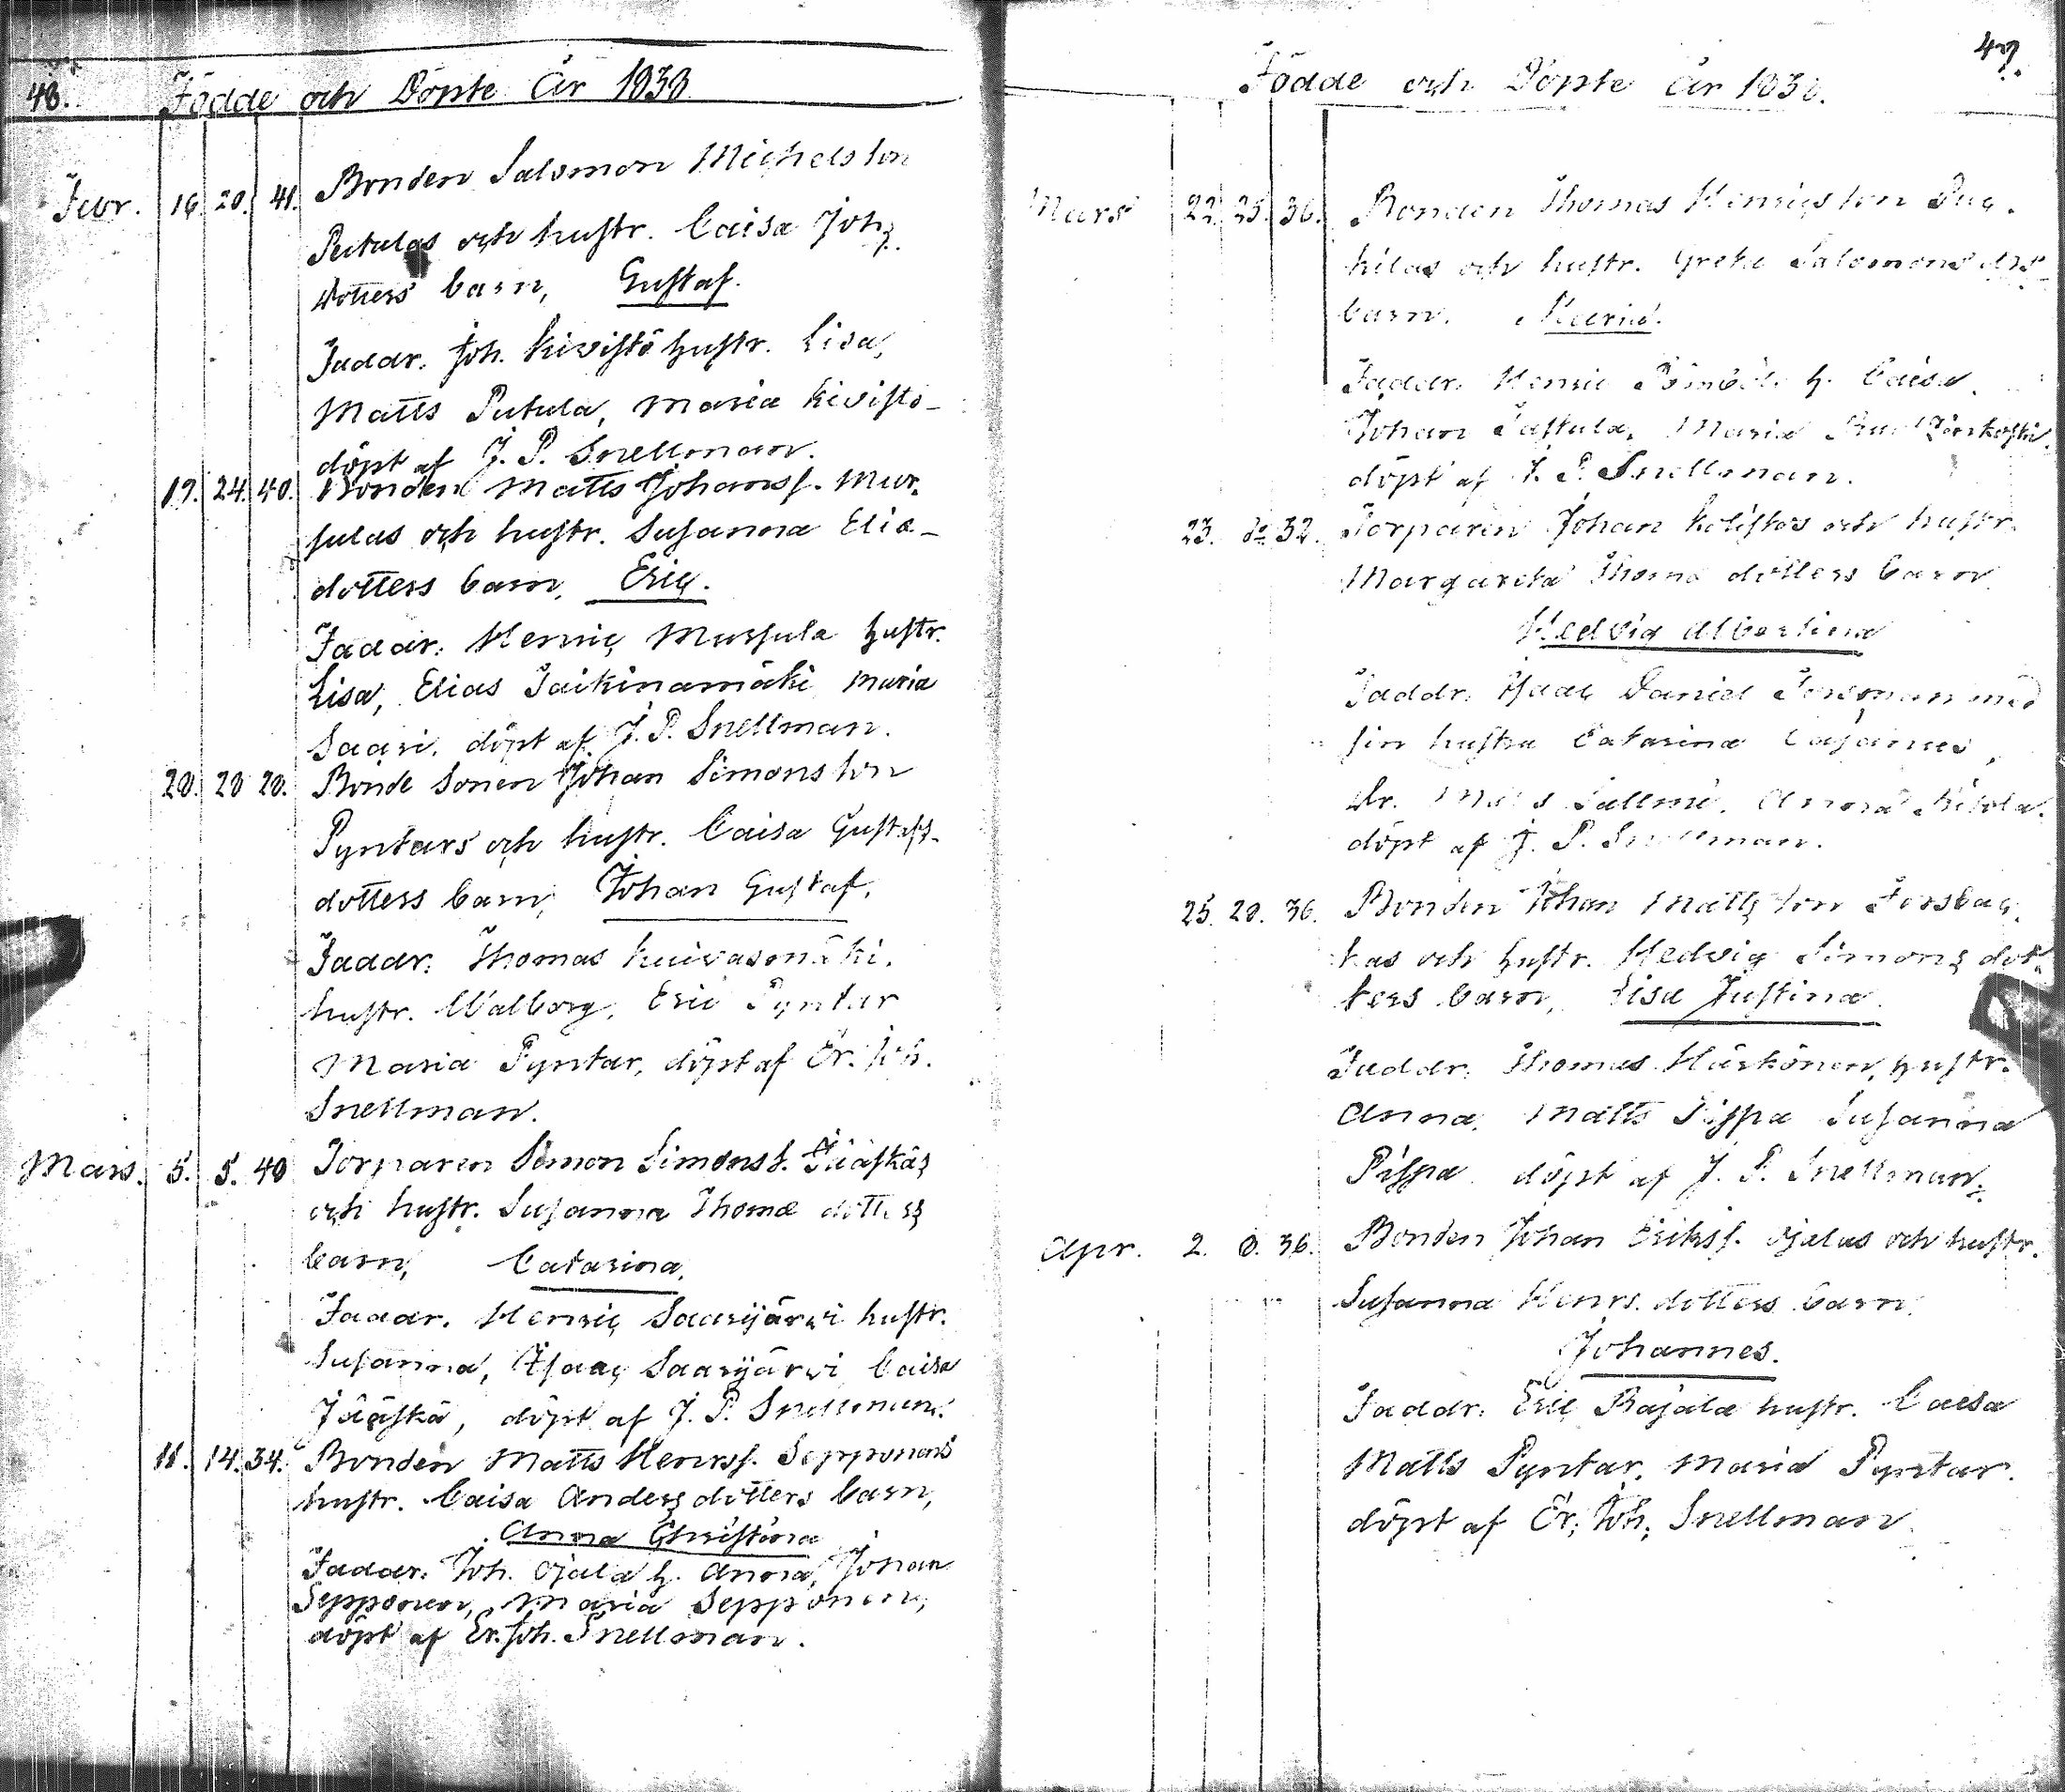 48.
Födde och Döpte År 1838
Febr. 16. 20. 41. Bonden Salomon Michelsson
Putulas och hustr. Caisa Johs
dotters barn, Gustaf.
Faddr. Joh. Kivistö hustr. Lisa,
Matts Putula, Maria Kivistö
döpt af J. P. Snellman.
19. 24. 40. Bonden Matts Johanss. Mur-
sulas och hustr. Susanna Elia-
dotters barn, Eric.
Faddr. Henric Mursula hustr.
Lisa, Elias Maria
Saari, döpt af J. P. Snellman.
20. 20 20. Bonde Sonen Johan Simonsson
Pyntars och hustr. Caisa Gustafs-
dotters barn, Johan Gustaf.
Faddr. Thomas Kuivasmäki,
hustr. Walborg, Eric Pyntar
Maria Pyntar, döpt af Er. Joh.
Snellman.
Mars. 5. 5. 40 Torparen Simon Simonss. Jääskäs
och hustr. Susanna Thomæ dotters
barn, Catarina.
Faddr. Henric Saarijärvi hustr.
Susanna, Isaac Saarijärvi Caisa
Jääskä, döpt af J. P. Snellman.
11. 14. 34. Bonden Matts Henrss. Sepponens
hustr. Caisa Anders dotters barn,
Anna Christina
Faddr. Joh. Ojala h. Anna, Johan
Sepponen, Maria Sepponen,
döpt af Er. Joh. Snellman.
47.
Födde och Döpte År 1838.
Mars 22. 25. 36. Bonden Thomas Henricsson
och hustr. Greta Salomons drs
barn. Maria.
Faddr. Henric h. Caisa,
Johan Maria
döpt af J. P. Snellman.
23. do 32. Torparen Johan Kolistos och hustr.
Margareta Thomæ dotters barn
Hedvig Albertina
Faddr. Isaac Daniel Forsman med
sin hustru Catarina Cajanus,
Anna
döpt af J. P. Snellman.
25. 28. 36. Bonden Johan Mattsson Forsbac-
kas och hustr. Hedvig Simons dot-
ters barn, Lisa Justina.
Faddr. Thomas Härkönen, hustr.
Anna, Matts Pisspa Susanna
Pisspa döpt af J. P. Snellman.
Apr. 2. 8. 36. Bonden Johan Erikss. Ojalas och hustr.
Susanna Henrs. dotters barn.
Johannes.
Faddr. Eric Rajala hustr. Caisa
Matts Pyntar, Maria Pyntar.
döpt af Er. Joh. Snellman